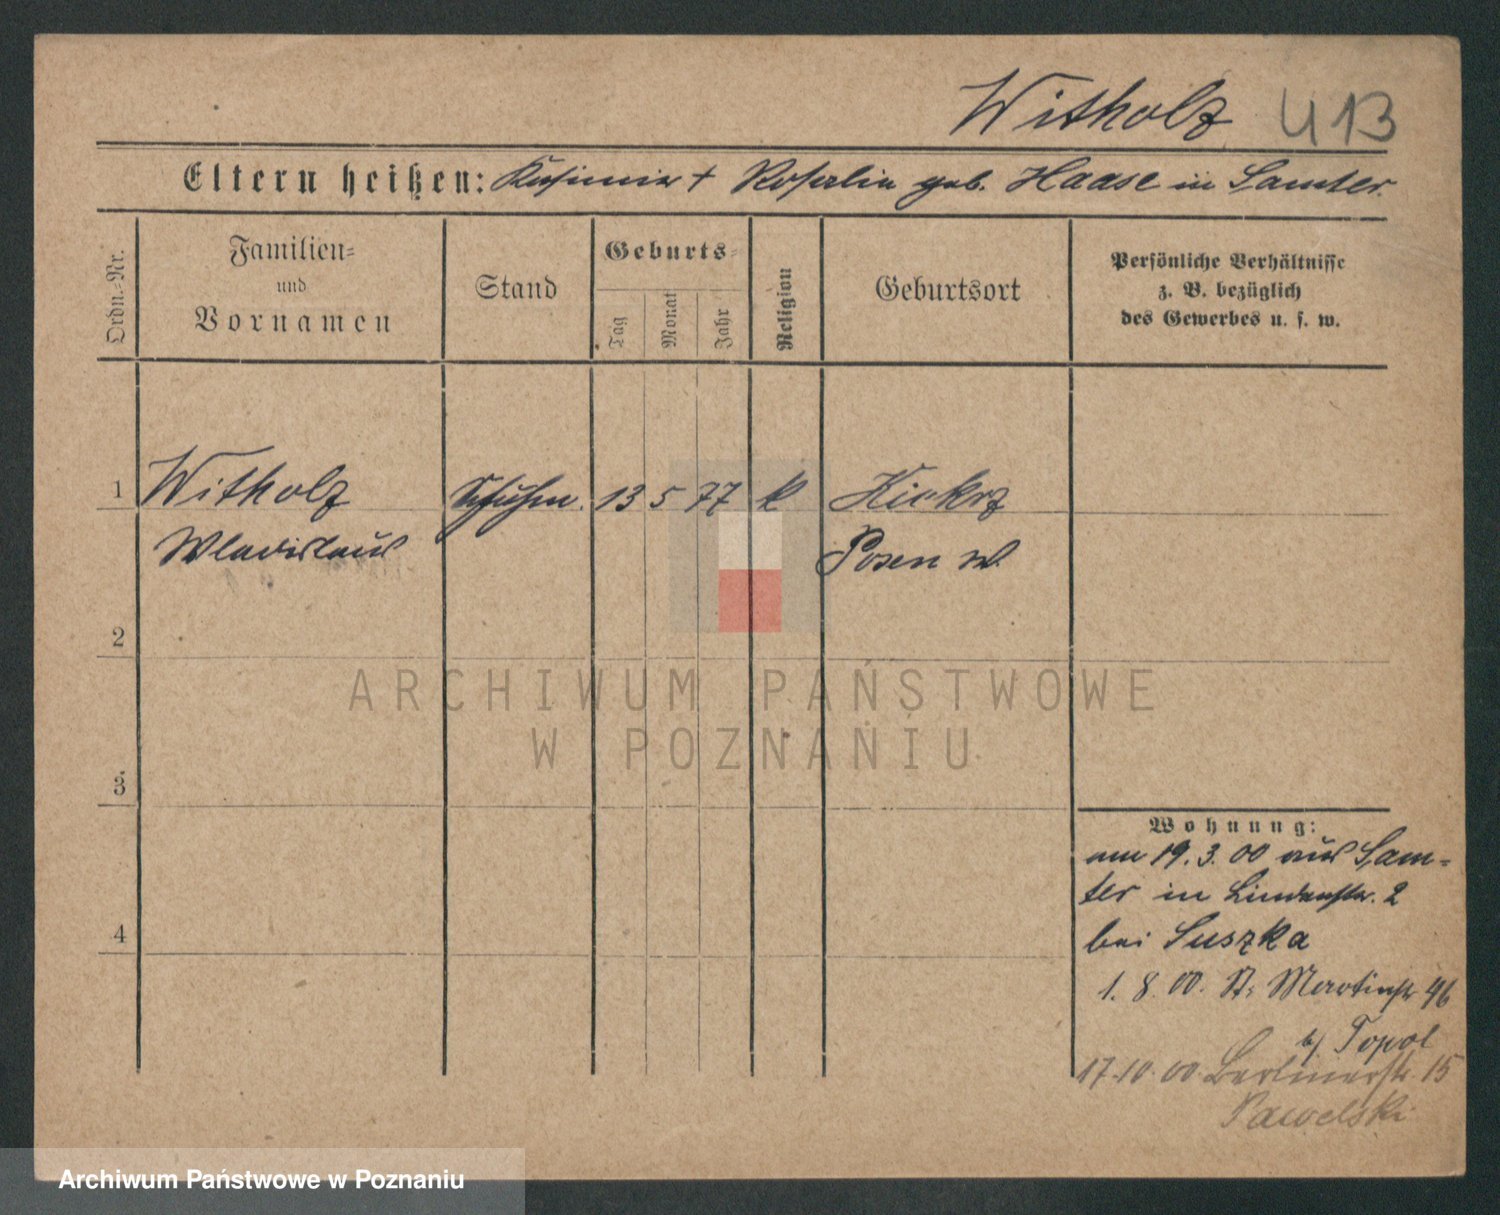 Witholz U 13
Eltern heißen: Kasimir + Rosalia geb. Haase in Samter.
Ordn.-Nr.
Familien-
und
Vornamen
Stand
Geburts-
Tag
Monat
Jahr
Religion
Geburtsort
Persönliche Verhältnisse
z. B. bezüglich
des Gewerbes u. s. w.
1 Witholz Schuhm. 13 5 77 k Kiekrz
Wladislaus Posen W.
2
3
4
ARCHIWUM PAŃSTWOWE
W POZNANIU
Wohnung:
am 19.3.00 aus Sam-
ter in Lindenstr. 2
bei Suszka
1. 8. 00. St. Martinstr 46
b/ Topol
17.10.00 Berlinerstr. 15
Pawelski
Archiwum Państwowe w Poznaniu